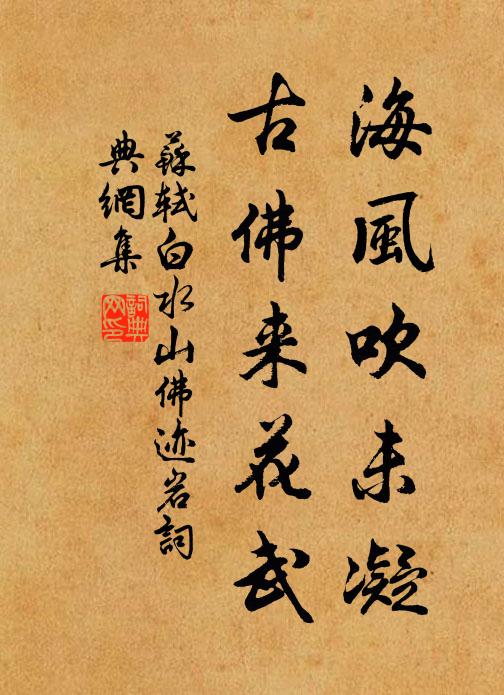 海風吹未凝
古佛来花武
蘇軾白水山佛迹岩詞
典網集
詞典网印